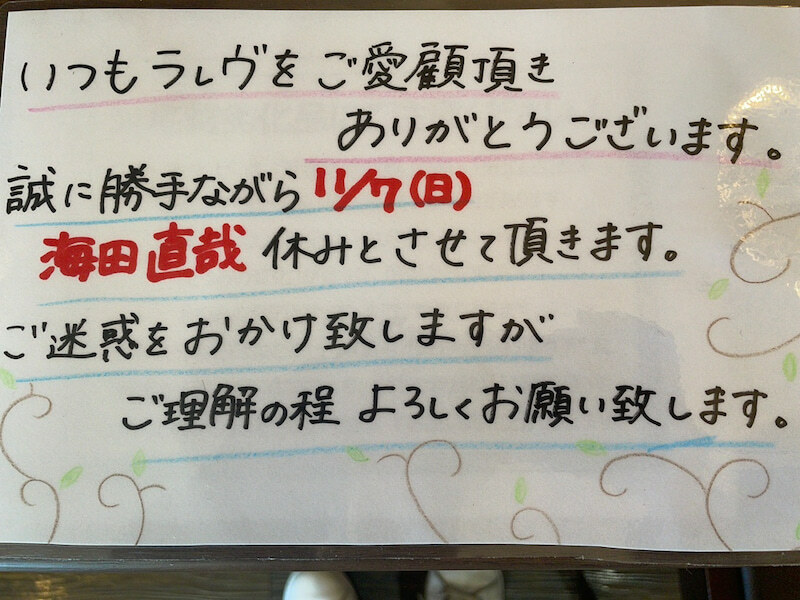 いつもラレヴをご愛顧頂き
ありがとうございます。
誠に勝手ながら 11/7(日)
海田直哉 休みとさせて頂きます。
ご迷惑をおかけ致しますが
ご理解の程 よろしくお願い致します。